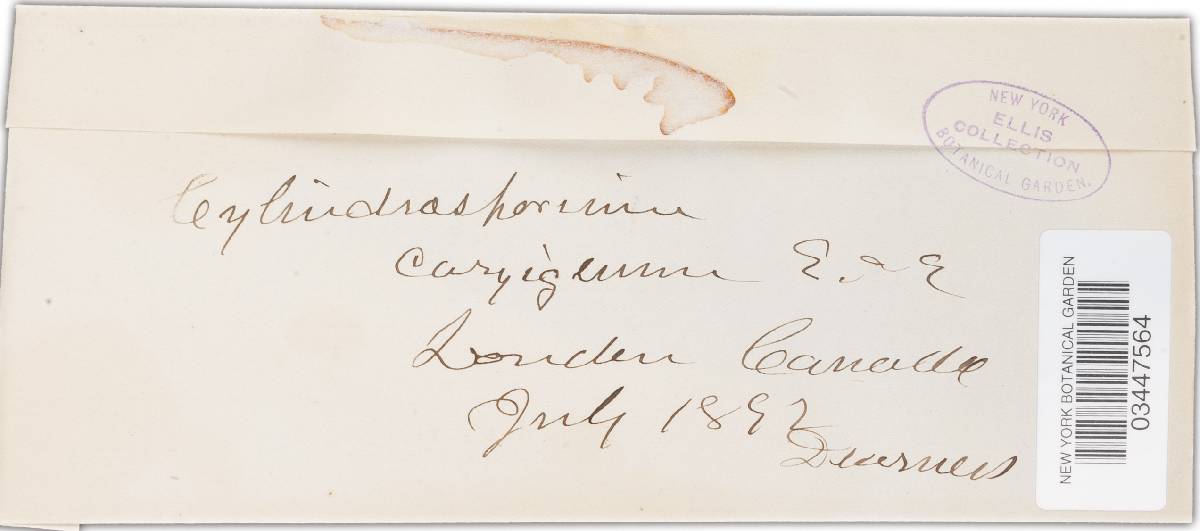 NEW YORK
ELLIS
COLLECTION
BOTANICAL GARDEN.
Cylindrosporium
caryigenum E. & E
London Canada
July 1892
Dearness
NEW YORK BOTANICAL GARDEN
03447564